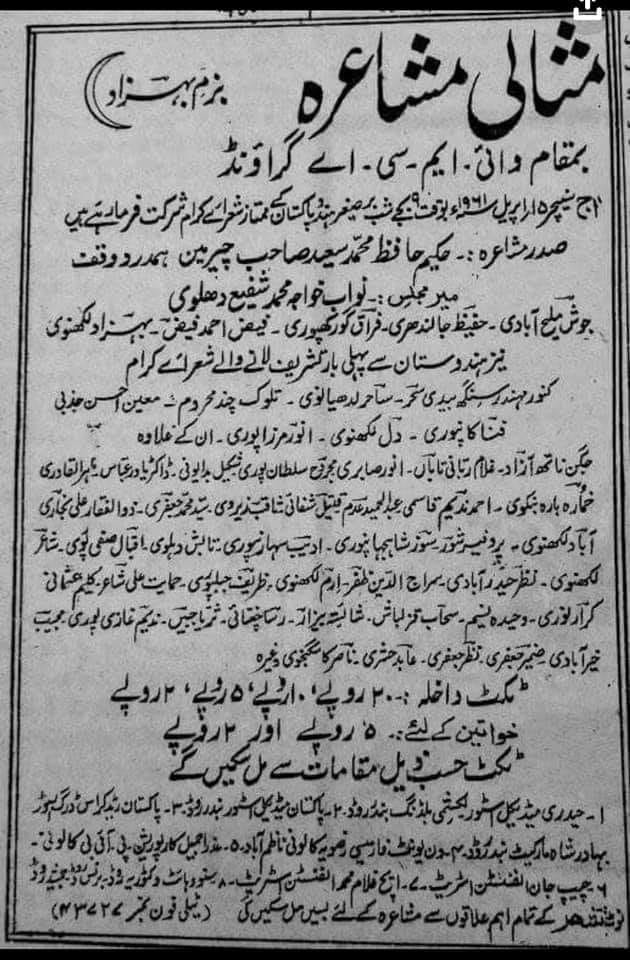 مثالی مشاعرہ
بزم بہزاد
بمقام وائی۔ ایم۔ سی۔ اے گراؤنڈ
آج سنیچر ۱۵ اپریل ۱۹۶۱ء بوقت ۹ بجے شب برصغیر ہند و پاکستان کے ممتاز شعرائے کرام شرکت فرما رہے ہیں
صدر مشاعرہ :۔ حکیم حافظ محمد سعید صاحب چیرمین ہمدرد وقف
میر مجلس :۔ نواب خواجہ محمد شفیع دھلوی
جوش ملیح آبادی۔ حفیظ جالندھری۔ فراق گورکھپوری۔ فیض احمد فیض۔ بہزاد لکھنوی
نیز ہندوستان سے پہلی بار تشریف لانے والے شعرائے کرام
کنور مہندر سنگھ بیدی سحر۔ ساحر لدھیانوی۔ تلوک چند محروم۔ معین احسن جذبی
فنا کانپوری۔ دل لکھنوی۔ انور مرزا پوری۔ ان کے علاوہ
جگن ناتھ آزاد۔ غلام ربانی تاباں۔ انور صابری مجروح سلطان پوری شکیل بدایونی۔ ڈاکٹر یاور عباس۔ ماہر القادری
خمار بارہ بنکوی۔ احمد ندیم قاسمی عبدالحمید عدم قتیل شفائی ثاقب زیروی۔ سید محمد جعفری۔ ذوالفقار علی بخاری
لکھنوی۔ پروفیسر شور۔ سوز شاہجہانپوری۔ ادیب سہارنپوری۔ تابش دہلوی۔ اقبال صفی پوری۔ شاعر
لکھنوی۔ نظر حیدر آبادی۔ سراج الدین ظفر۔ ارم لکھنوی۔ ظریف جبلپوری۔ حمایت علی شاعر۔ کلیم عثمانی
کرار نوری۔ وحیدہ نسیم۔ سحاب قزلباش۔ رسا چغتائی۔ ندیم غازی پوری۔ مجیب
خیر آبادی ضمیر جعفری۔ نظر جعفری۔ عابد حشری۔ وغیرہ
ٹکٹ داخلہ :۔ ۲۰ روپے، ۱۰ روپے، ۵ روپے، ۲ روپے
خواتین کے لئے :۔ ۵ روپے اور ۲ روپے
ٹکٹ حسب ذیل مقامات سے مل سکیں گے
۱۔ حیدری میڈیکل اسٹور لکشمی بلڈنگ بندر روڈ۔ ۲۔ پاکستان میڈیکل اسٹور بندر روڈ۔ ۳۔ پاکستان ریڈ کراس ڈرگ اسٹور
بہادر شاہ مارکیٹ بندر روڈ۔ ۴۔ فارمیسی رضویہ کالونی ناظم آباد۔ ۵۔ کارپوریشن۔ پی۔ آئی بی کالونی۔
۶۔ جان الفنسٹن اسٹریٹ۔ ۷۔ ایچ غلام محمد الفنسٹن اسٹریٹ۔ ۸۔ وکٹوریہ روڈ
نوٹ شہر کے تمام اہم علاقوں سے مشاعرہ کے لئے بسیں مل سکیں گی (ٹیلی فون نمبر ۴۳۷۲۷)